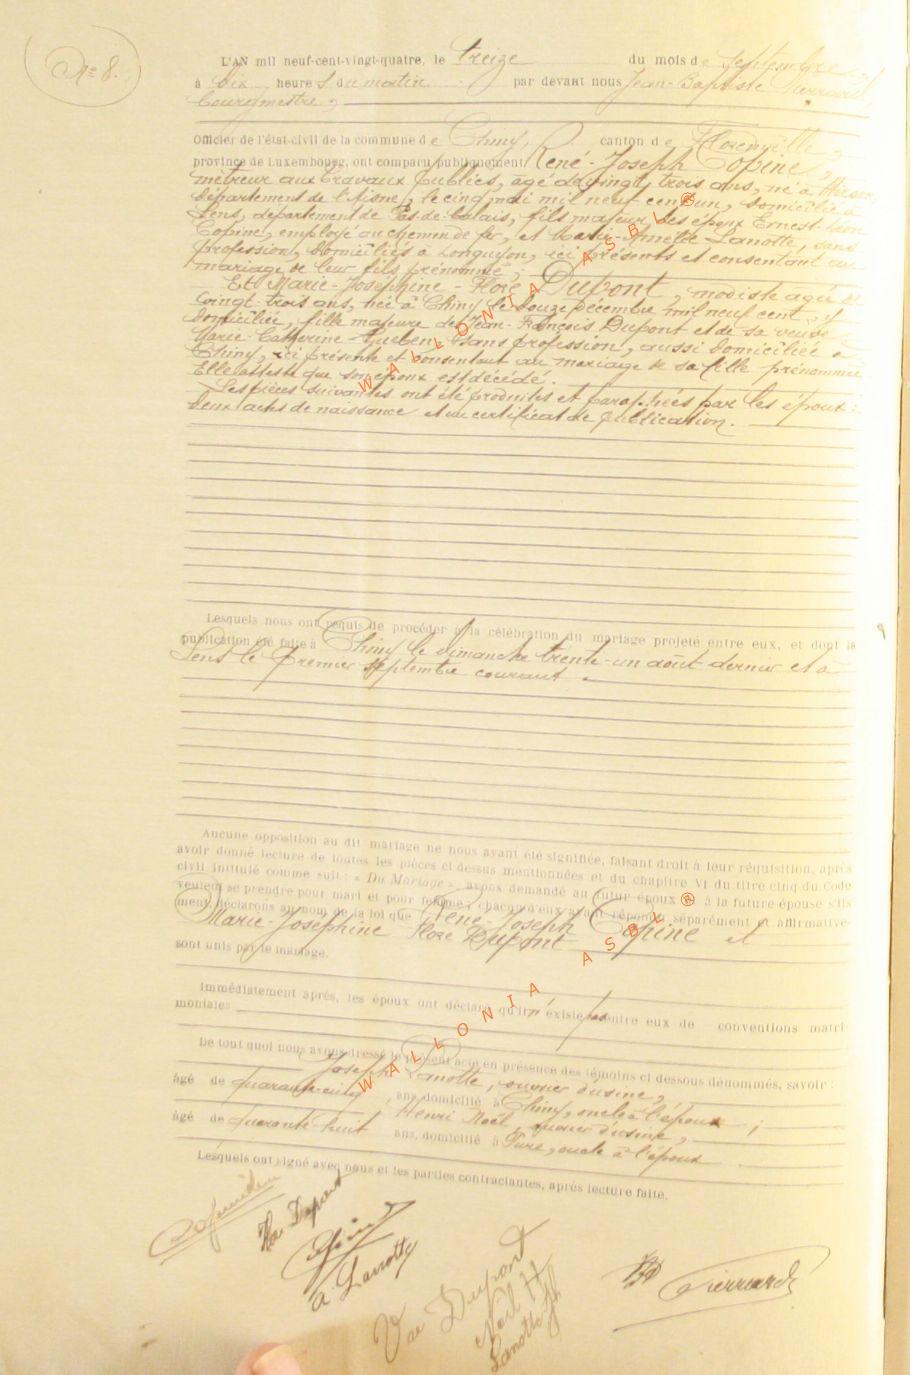 No 8.
L'AN mil neuf-cent-vingt-quatre, le treize du mois de Septembre
à dix heures du matin par devant nous Jean-Baptiste Pierrard,
bourgmestre,
Officier de l'état-civil de la commune de Chiny, canton de Florenville,
province de Luxembourg, ont comparu publiquement René-Joseph Copine,
métreur aux travaux publics, âgé de vingt trois ans, né à Hirson
département de l'Aisne, le cinq mai mil neuf cent un, domicilié à
Lens, département de Pas-de-Calais, fils majeur des époux Ernest-Léon
Copine, employé au chemin de fer, et Marie-Amélie Lanotte, sans
profession, domiciliés à Longuyon, ici présents et consentant au
mariage de leur fils prénommé ;
Et Marie-Joséphine-Flore Dupont, modiste agée de
vingt-trois ans, née à Chiny le douze décembre mil neuf cent, y
domiciliée, fille majeure de Jean-François Dupont et de sa veuve
Marie-Catherine Gueben, sans profession, aussi domiciliée à
Chiny, ici présente et consentant au mariage de sa fille prénommée
Elle atteste que son époux est décédé.
Les pièces suivantes ont été produites et paraphées par les époux :
deux actes de naissance et un certificat de publication.
Lesquels nous ont requis de procéder à la célébration du mariage projeté entre eux, et dont la
publication été faite à Chiny le dimanche trente-un août dernier et à
Lens le premier septembre courant.
Aucune opposition au dit mariage ne nous ayant été signifiée, faisant droit à leur réquisition, après
avoir donné lecture de toutes les pièces ci-dessus mentionnées et du chapitre VI du titre cinq du Code
civil intitulé comme suit : « Du Mariage » avons demandé au futur époux et à la future épouse s'ils
veulent se prendre pour mari et pour femme, chacun d'eux ayant répondu séparément et affirmative-
ment, déclarons au nom de la loi que René-Joseph Copine et
Marie-Josephine Flore Dupont
sont unis par le mariage.
Immédiatement après, les époux ont déclaré qu'il n'existe pas entre eux de conventions matri-
moniales
De tout quoi nous avons dressé le présent acte en présence des témoins ci dessous dénommés, savoir :
Joseph Lanotte, ouvrier d'usine,
âgé de quarante-cinq ans, domicilié à Chiny, oncle à l'époux ;
Henri Noël, ouvrier d'usine,
âgé de quarante huit ans, domicilié à oncle à l'époux
Lesquels ont signé avec nous et les parties contractantes, après lecture faite.
Flore Dupont
Copine
a Lanotte
Ve Dupont
Noël H
Lanotte Jh
JB Pierrard
WALLONIA ASBL ®
WALLONIA ASBL ®